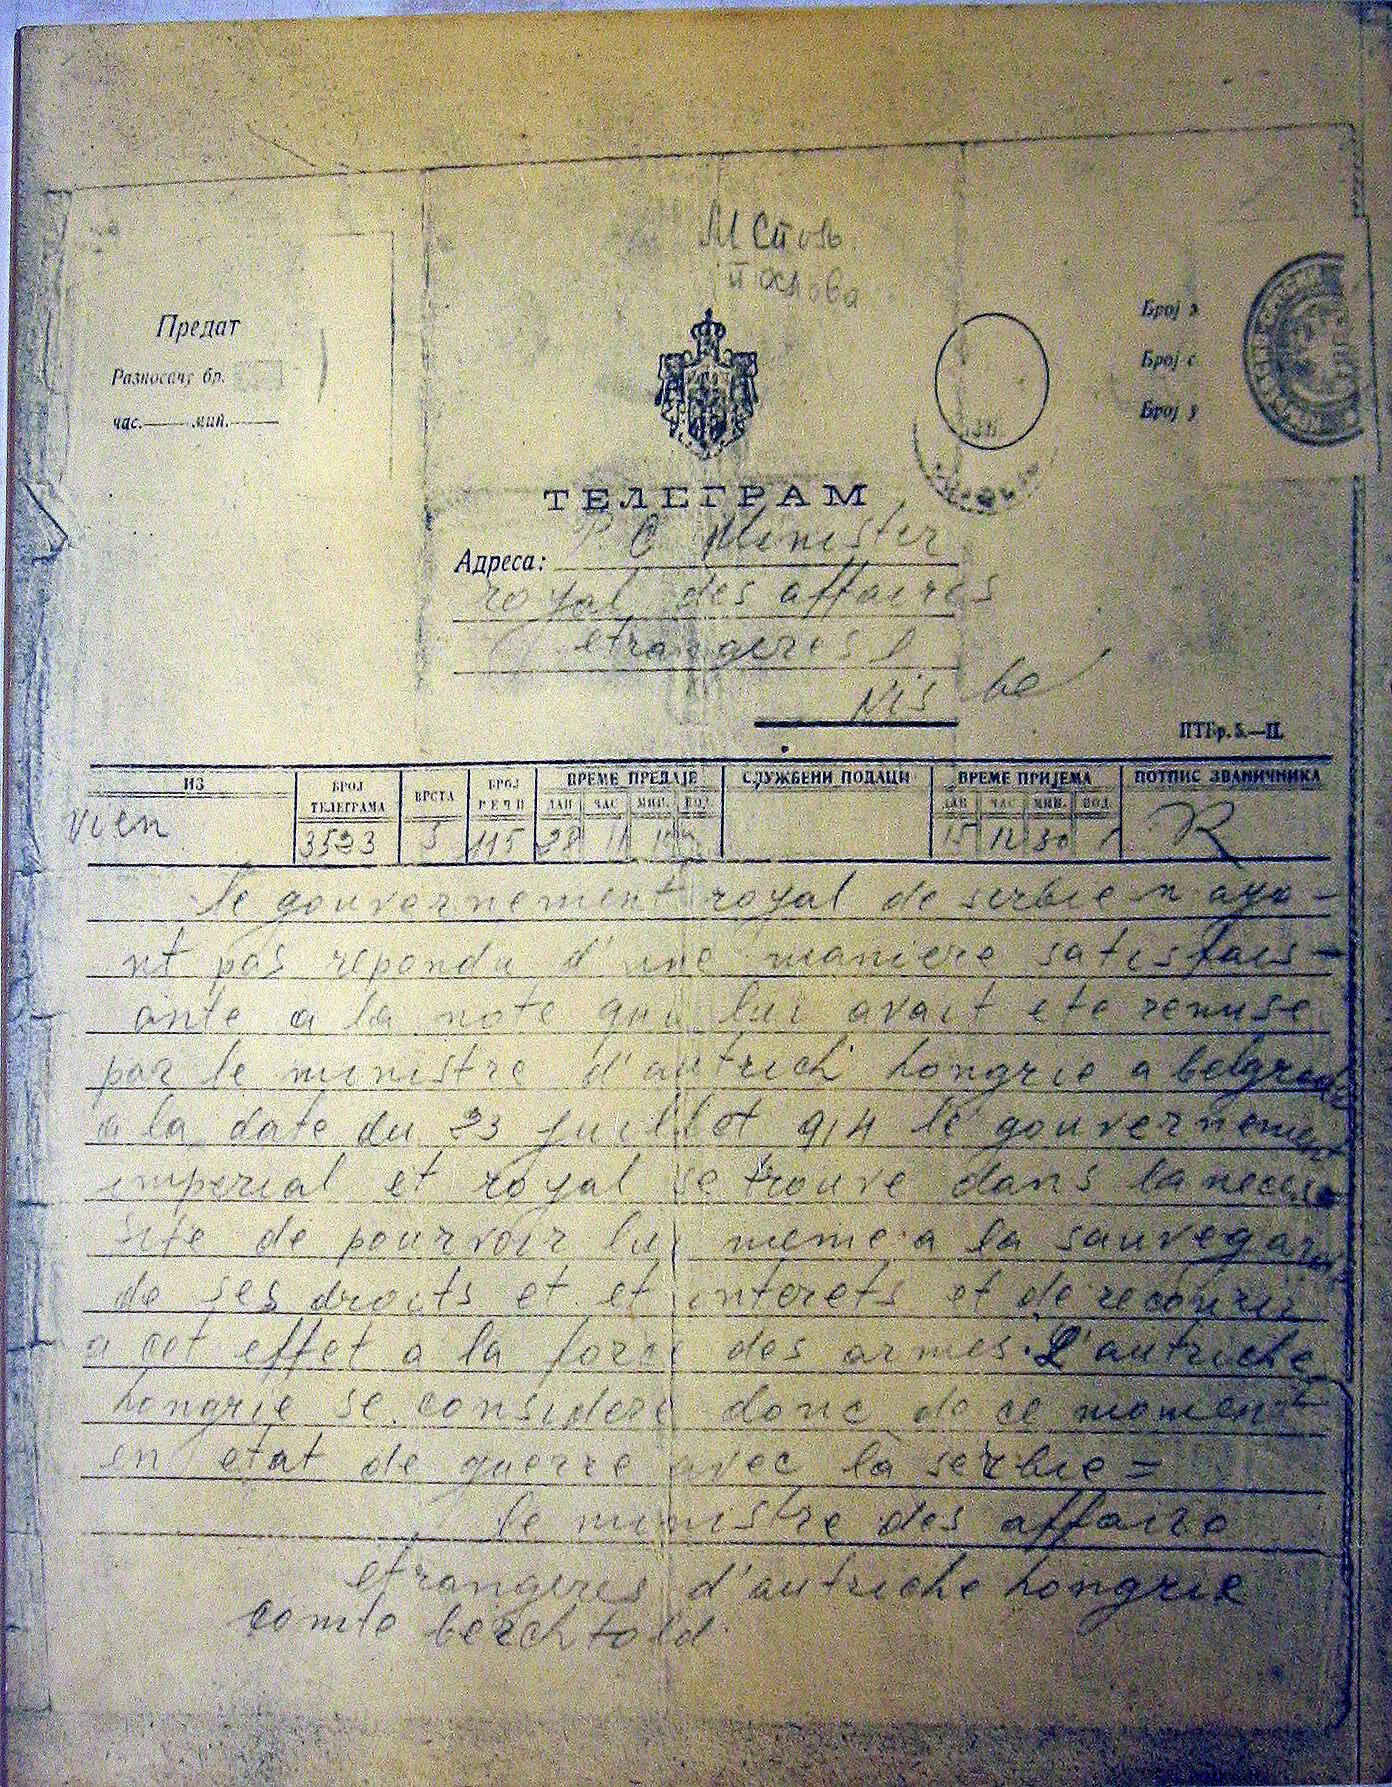 М спољ
послова
Предат
Разносачу бр.
час. мин.
Број
Број с
Број
ТЕЛЕГРАМ
Адреса: Minister
royal des affaires
etrangeres
Nis
ПТБр. 5.—II.
ИЗ
БРОЈ ТЕЛЕГРАМА
ВРСТА
БРОЈ РЕЧИ
ВРЕМЕ ПРЕДАЈЕ
СЛУЖБЕНИ ПОДАЦИ
ВРЕМЕ ПРИЈЕМА
ПОТПИС ЗВАНИЧНИКА
ДАН ЧАС МИН. ПОД.
ДАН ЧАС МИН. ПОД.
vien 3523 5 115 28 11 10 15 12 30 R
le gouvernement royal de serbie n aya-
nt pas repondu d'une maniere satisfais-
ante a la note qui lui avait ete remise
par le ministre d'autrich hongrie a belgrade
a la date du 23 juillet 914 le gouvernement
imperial et royal se trouve dans la neces
site de pourvoir lui meme a la sauvegar
de ses droits et et interets et de recourir
a cet effet a la force des armes. L'autriche
hongrie se considere donc de ce moment
en etat de guerre avec la serbie =
le ministre des affaire
etrangeres d'autriche hongrie
comte berchtold